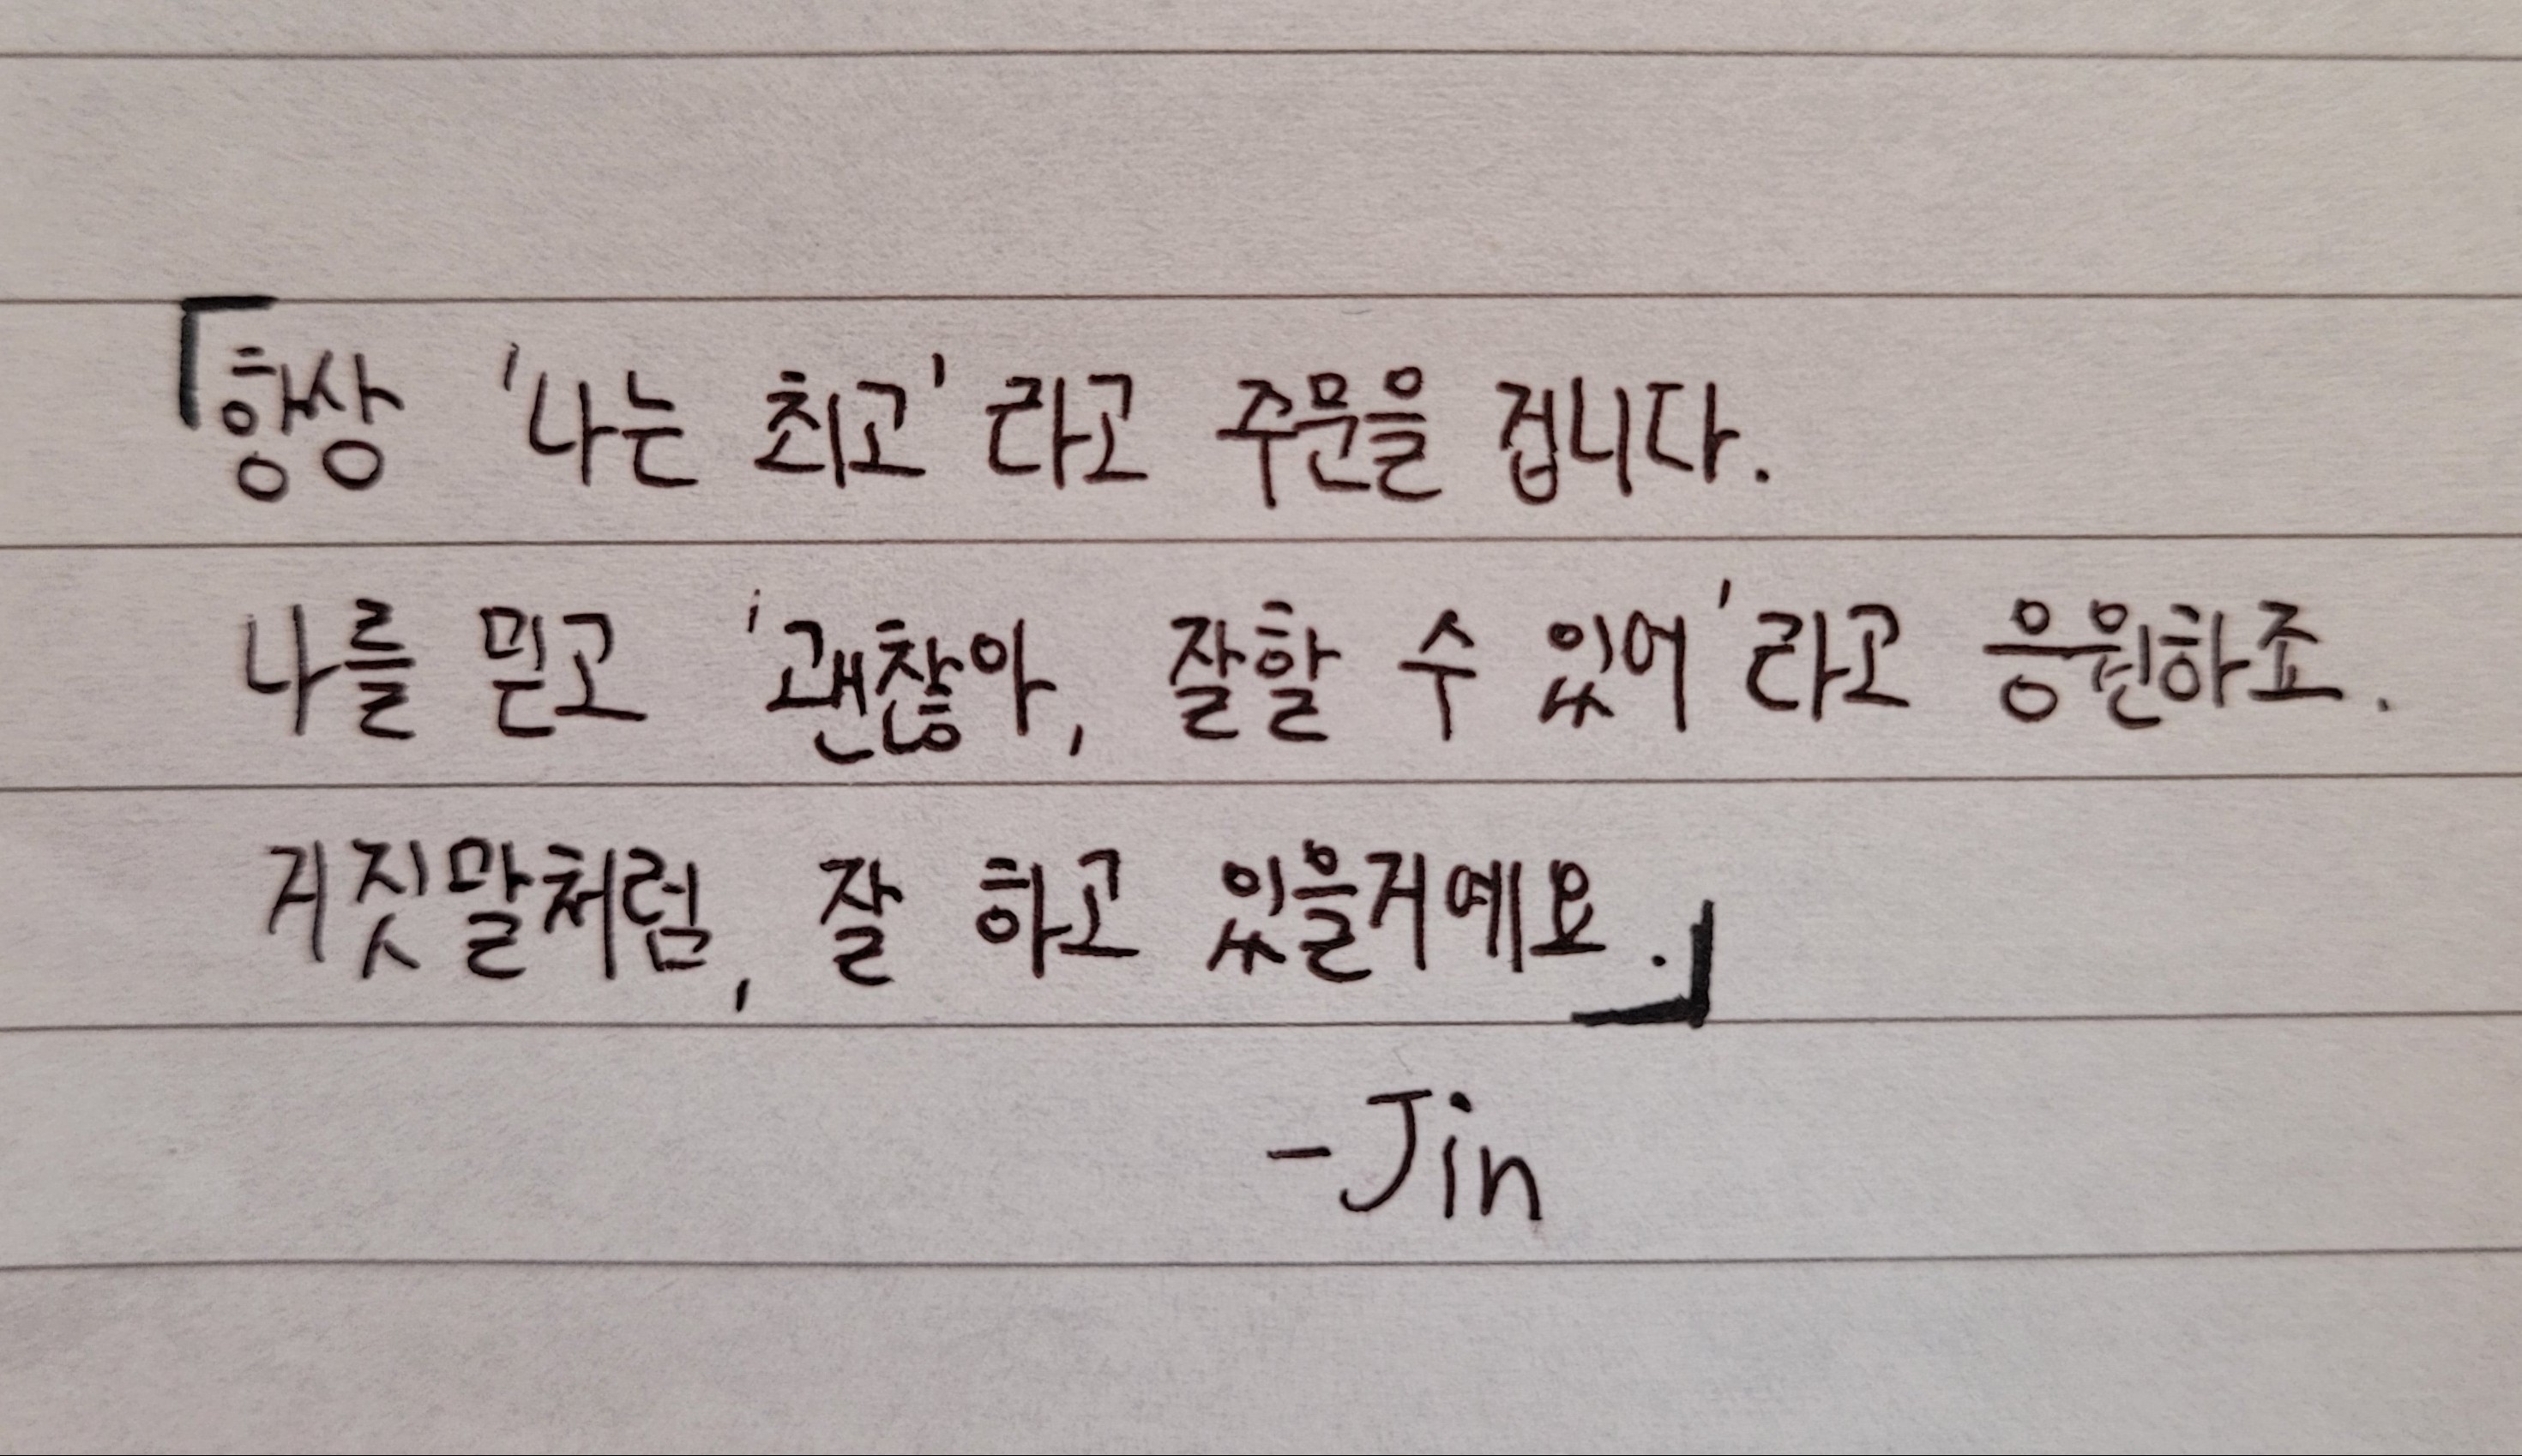 「항상 '나는 최고'라고 주문을 겁니다.
나를 믿고 '괜찮아, 잘할 수 있어'라고 응원하죠.
거짓말처럼, 잘 하고 있을거예요.」
-Jin